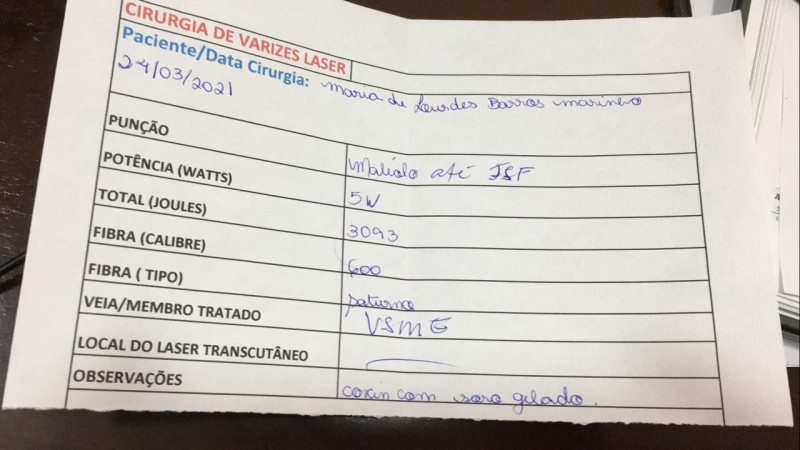 CIRURGIA DE VARIZES LASER
Paciente/Data Cirurgia: Maria de Lourdes Barros Marinho
24/03/2021
PUNÇÃO Maléolo até JSF
POTÊNCIA (WATTS) 5W
TOTAL (JOULES) 3093
FIBRA (CALIBRE) 600
FIBRA ( TIPO) saturno
VEIA/MEMBRO TRATADO VSME
LOCAL DO LASER TRANSCUTÂNEO
OBSERVAÇÕES coxin com soro gelado.